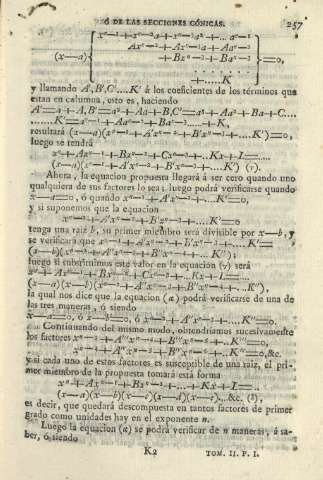 Ó DE LAS SECCIONES CÓNICAS. 257
x^{n-1}+x^{n-2}a+x^{n-3}a^2+...a^{n-1}
Ax^{n-2}+Ax^{n-3}a+Aa^{n-2}
(x—a) +Bx^{n-3}+Ba^{n-3} =0,
+.....K
y llamando A',B',C'....K' á los coeficientes de los términos que
estan en calumna, esto es, haciendo
A'=a+A, B'=a^2+Aa+B, C'=a^3+Aa^2+Ba+C...,
.......K'=a^{n-1}+Aa^{n-2}+Ba^{n-3}...+K,
resultará (x—a)(x^{n-1}+A'x^{n-2}+B'x^{n-3}+....K')=0,
luego se tendrá
x^n+Ax^{n-1}+Bx^{n-2}+Cx^{n-3}+....Kx+L=....
(x—a)(x^{n-1}+A'x^{n-2}+B'x^{n-3}+....K') (γ).
Ahora, la equacion propuesta llegará á ser cero quando uno
qualquiera de sus factores lo sea; luego podrá verificarse quando
x—a=0, ó quando x^{n-1}+A'x^{n-2}+...K'=0,
y si suponemos que la equacion
x^{n-1}+A'x^{n-2}+B'x^{n-3}+....K'=0
tenga una raiz b, su primer miembro será divisible por x—b, y
se verificará que x^{n-1}+A'x^{n-2}+B'x^{n-3}+....K'=
(x—b)(x^{n-2}+A''x^{n-3}+B''x^{n-4}+...K'');
luego si substituimos este valor en la equacion (γ) será
x^n+Ax^{n-1}+Bx^{n-2}+Cx^{n-3}+...Kx+L=....
(x—a)(x—b)(x^{n-2}+A''x^{n-3}+B''x^{n-4}+..K''),
la qual nos dice que la equacion (α) podrá verificarse de una de
las tres maneras, ó siendo
x—a=0, ó x—b=0, ó x^{n-2}+A''x^{n-3}+....K''=0.
Continuando del mismo modo, obtendriamos sucesivamente
los factores x^{n-3}+A'''x^{n-4}+B'''x^{n-5}+...K'''=0,
x^{n-4}+A''''x^{n-5}+B''''x^{n-6}+...K''''=0, &c.
y si cada uno de estos factores es susceptible de una raiz, el pri-
mer miembro de la propuesta tomará esta forma
x^n+Ax^{n-1}+Bx^{n-2}+...+Kx+L=..
(x—a)(x—b)(x—c)(x—d)(x—e)...&c. (δ),
es decir, que quedará descompuesta en tantos factores de primer
grado como unidades hay en el exponente n.
Luego la equacion (α) se podrá verificar de n maneras, á sa-
ber, ó siendo
K2 TOM. II. P. I.